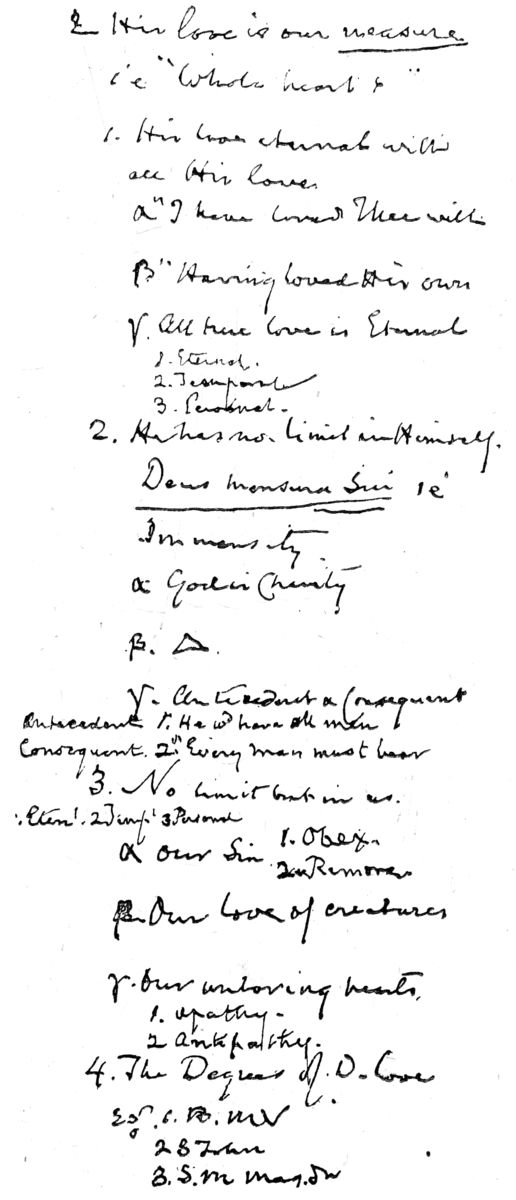 2 His love is our measure
i e "Whole heart & "
1. His love eternal with
all His love
α "I have loved Thee with
β "Having loved His own
γ. All true love is Eternal
1. Eternal.
2. Temporal
3. Personal.
2. He has no limit in Himself.
Deus mensura Sui i e
Immensity.
α God is Charity
β. △.
γ. Antecedent & Consequent
Antecedent 1. He wd have all men
Consequent. 2. "Every man must bear
3. No limit but in us.
1. Eternl. 2 Templ 3 Personal
α our Sin 1. Obex.
2.
β Our love of creatures
γ. Our unloving hearts.
1. apathy.
2 Antipathy.
4. The Degrees of D. Love
Eg. 1. B. M V
2 S John
3. S. M Magd